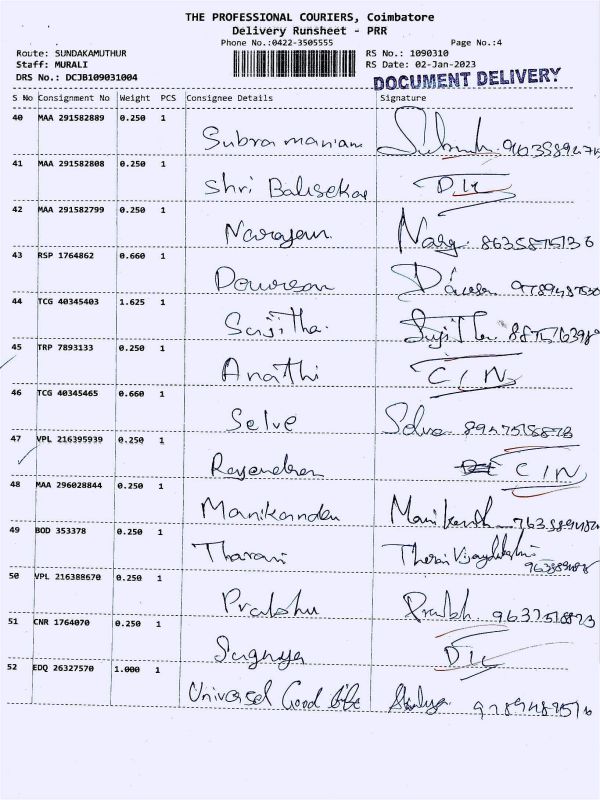 THE PROFESSIONAL COURIERS, Coimbatore
Delivery Runsheet - PRR
Phone No.:0422-3505555 Page No.:4
Route: SUNDAKAMUTHUR RS No.: 1090310
Staff: MURALI RS Date: 02-Jan-2023
DRS No.: DCJB109031004 DOCUMENT DELIVERY
S No Consignment No Weight PCS Consignee Details Signature
40 MAA 291582889 0.250 1
Subramaniam
41 MAA 291582808 0.250 1
Shri Balisekar D/L
42 MAA 291582799 0.250 1
Narayanan 8635875136
43 RSP 1764862 0.660 1
44 TCG 40345403 1.625 1
Sujitha
45 TRP 7893133 0.250 1
Anathi C/N
46 TCG 40345465 0.660 1
Selve Selva
47 VPL 216395939 0.250 1
Rajendran C/N
48 MAA 296028844 0.250 1
Manikandan
49 BOD 353378 0.250 1
Tharani
50 VPL 216388670 0.250 1
Prabhu
51 CNR 1764070 0.250 1
D/L
52 EDQ 26327570 1.000 1
Universal Good life